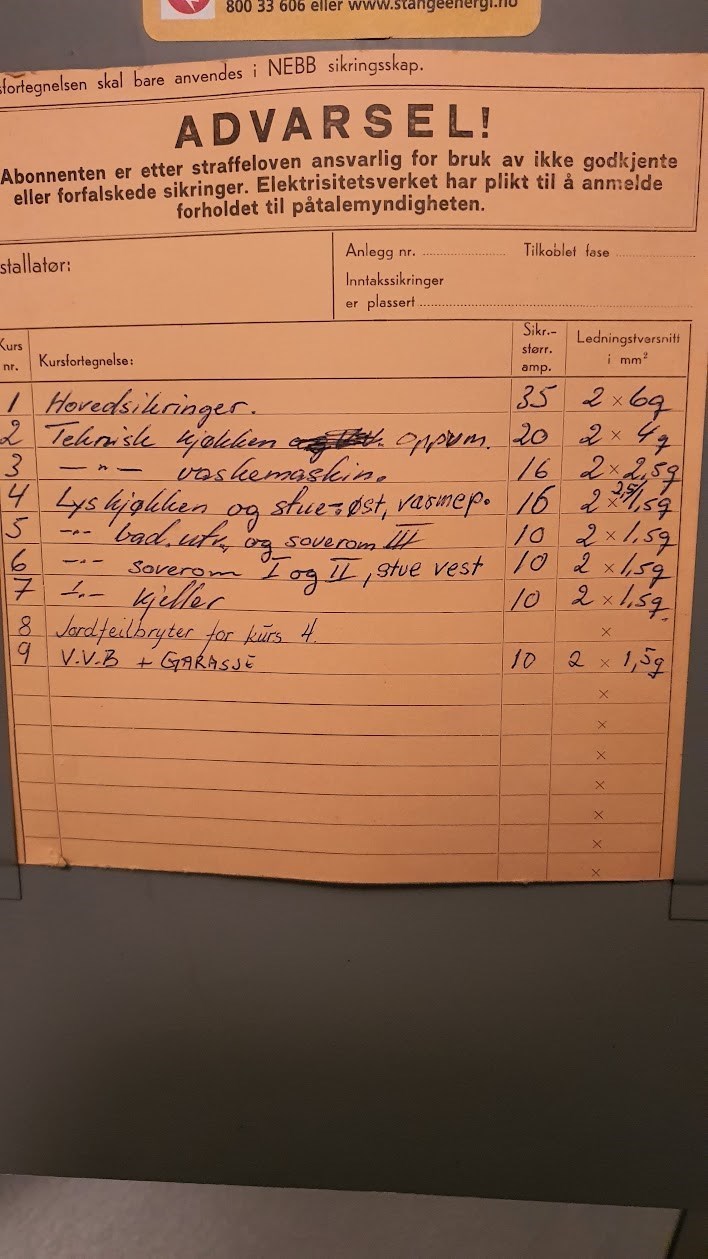 800 33 606 eller www.stangeenergi.no
sfortegnelsen skal bare anvendes i NEBB sikringsskap.
ADVARSEL!
Abonnenten er etter straffeloven ansvarlig for bruk av ikke godkjente
eller forfalskede sikringer. Elektrisitetsverket har plikt til å anmelde
forholdet til påtalemyndigheten.
stallatør:
Anlegg nr. Tilkoblet fase
Inntakssikringer
er plassert
Kurs nr. Kursfortegnelse: Sikr.- størr. amp. Ledningstversnitt i mm²
1 Hovedsikringer. 35 2 × 6q
2 Teknisk kjøkken oppvm. 20 2 × 4q
3 —〃— vaskemaskin. 16 2 × 2,5q
4 Lys kjøkken og stue-øst, varmep. 16 2 × 2,5/1,5q
5 -〃- bad. utv, og soverom III 10 2 × 1.5q
6 -〃- soverom I og II, stue vest 10 2 × 1,5q
7 -〃- kjeller 10 2 × 1,5q.
8 Jordfeilbryter for kurs 4. ×
9 V.V.B + GARASJE 10 2 × 1,5q
×
×
×
×
×
×
×